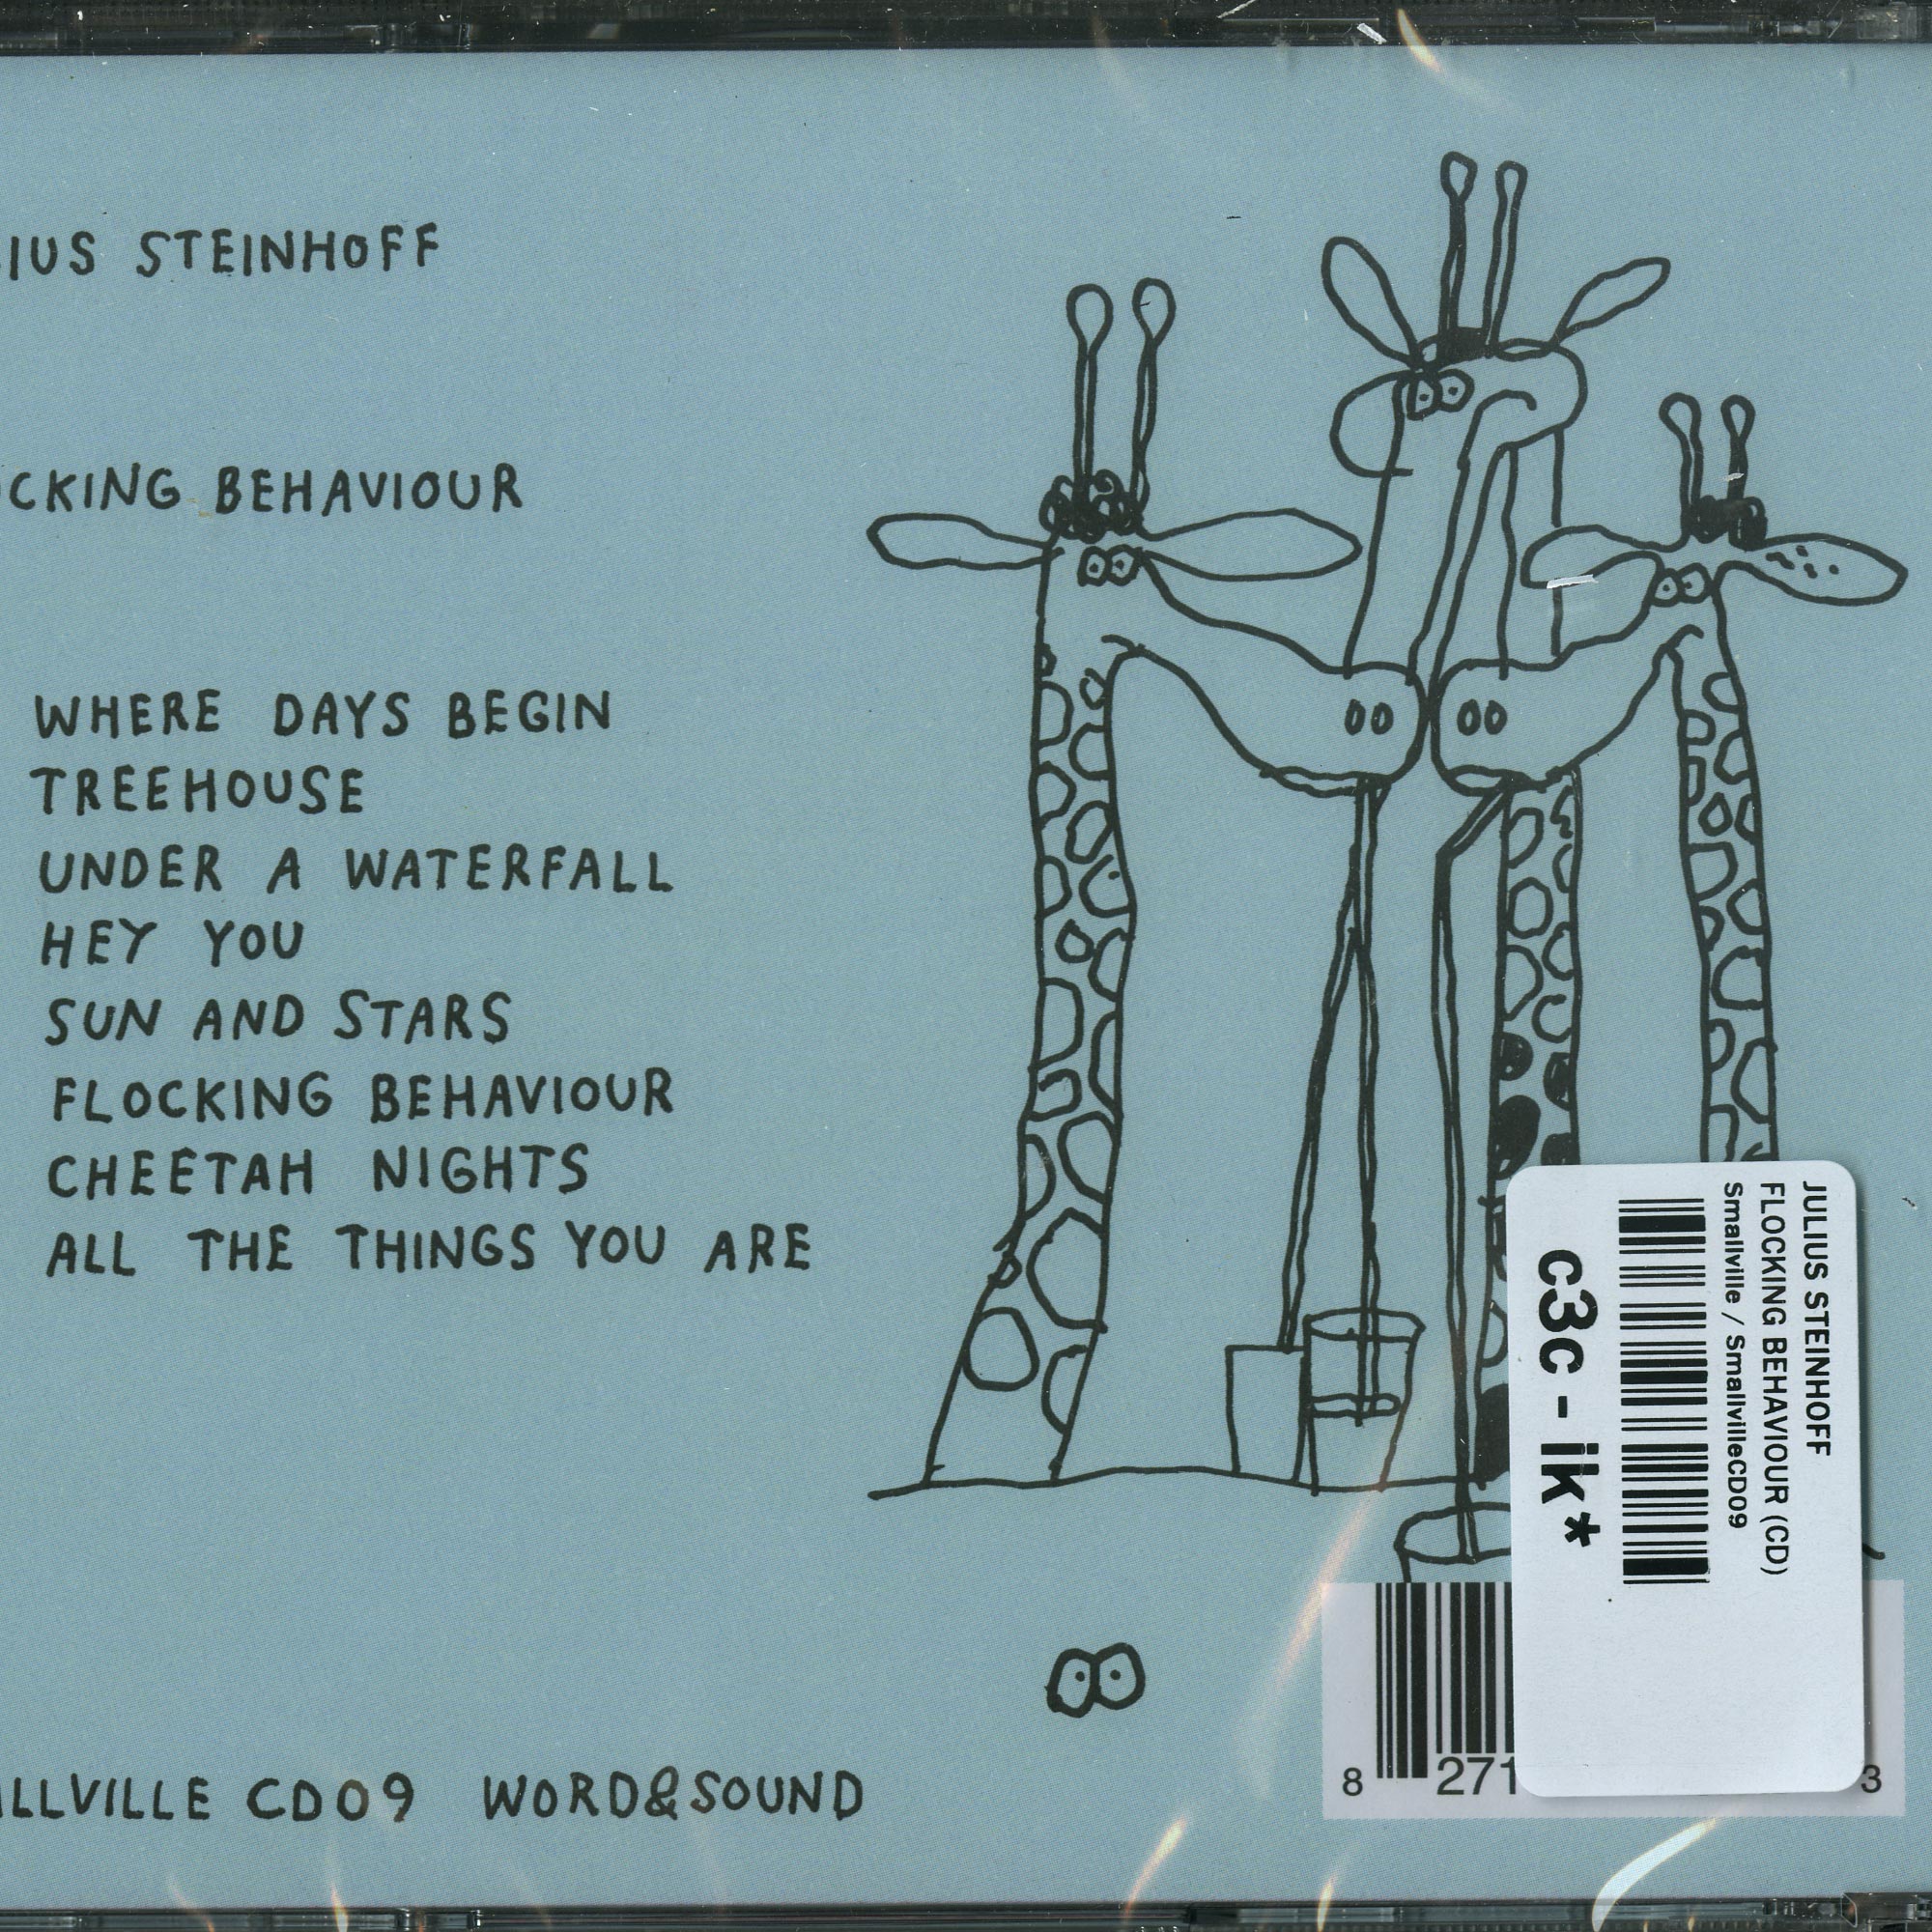 IUS STEINHOFF
CKING BEHAVIOUR
WHERE DAYS BEGIN
TREEHOUSE
UNDER A WATERFALL
HEY YOU
SUN AND STARS
FLOCKING BEHAVIOUR
CHEETAH NIGHTS
ALL THE THINGS YOU ARE
JULIUS STEINHOFF
FLOCKING BEHAVIOUR (CD)
Smallville / SmallvilleCD09
c3c - ik*
8 271 3
LLVILLE CD09 WORD&SOUND